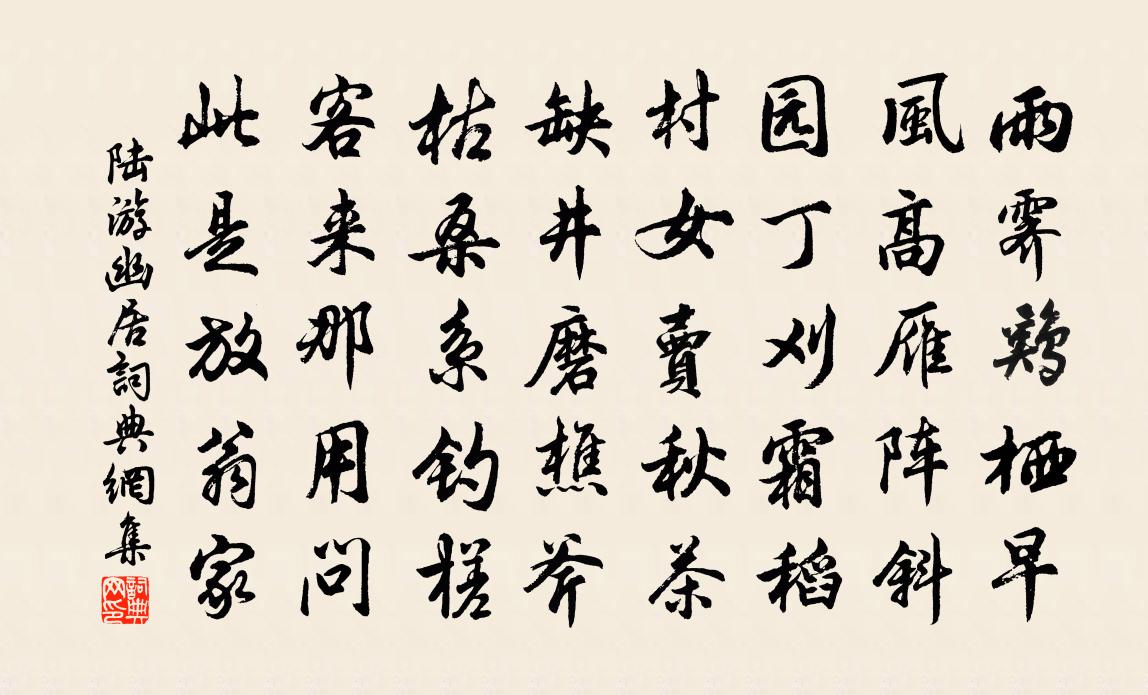 雨霽鷄栖早
風高雁阵斜
园丁刈霜稻
村女賣秋茶
缺井磨樵斧
枯桑系钓槎
客来那用问
此是放翁家
陆游幽居詞典網集
詞典网印